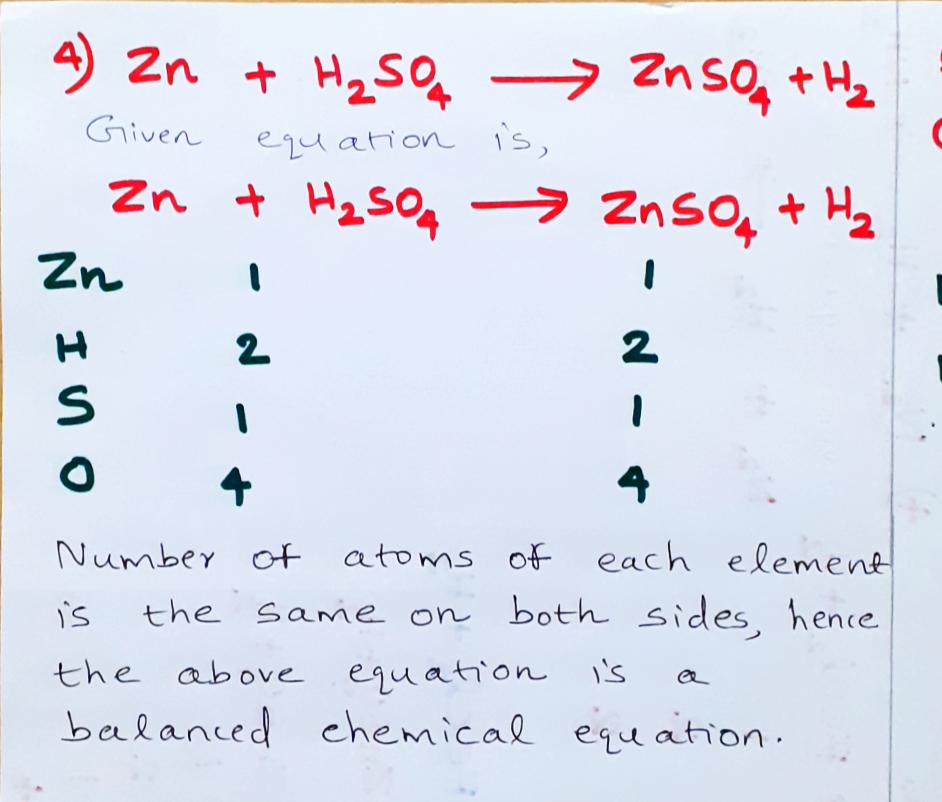 4) Zn + H₂SO₄ ⟶ ZnSO₄ + H₂
Given equation is,
Zn + H₂SO₄ ⟶ ZnSO₄ + H₂
Zn 1 1
H 2 2
S 1 1
O 4 4
Number of atoms of each element
is the same on both sides, hence
the above equation is a
balanced chemical equation.